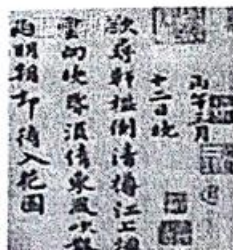 丙午三月
十二日晚
欲尋軒檻倒清樽江上
雲向晚昏須倩東風吹
雨明朝却待入花園